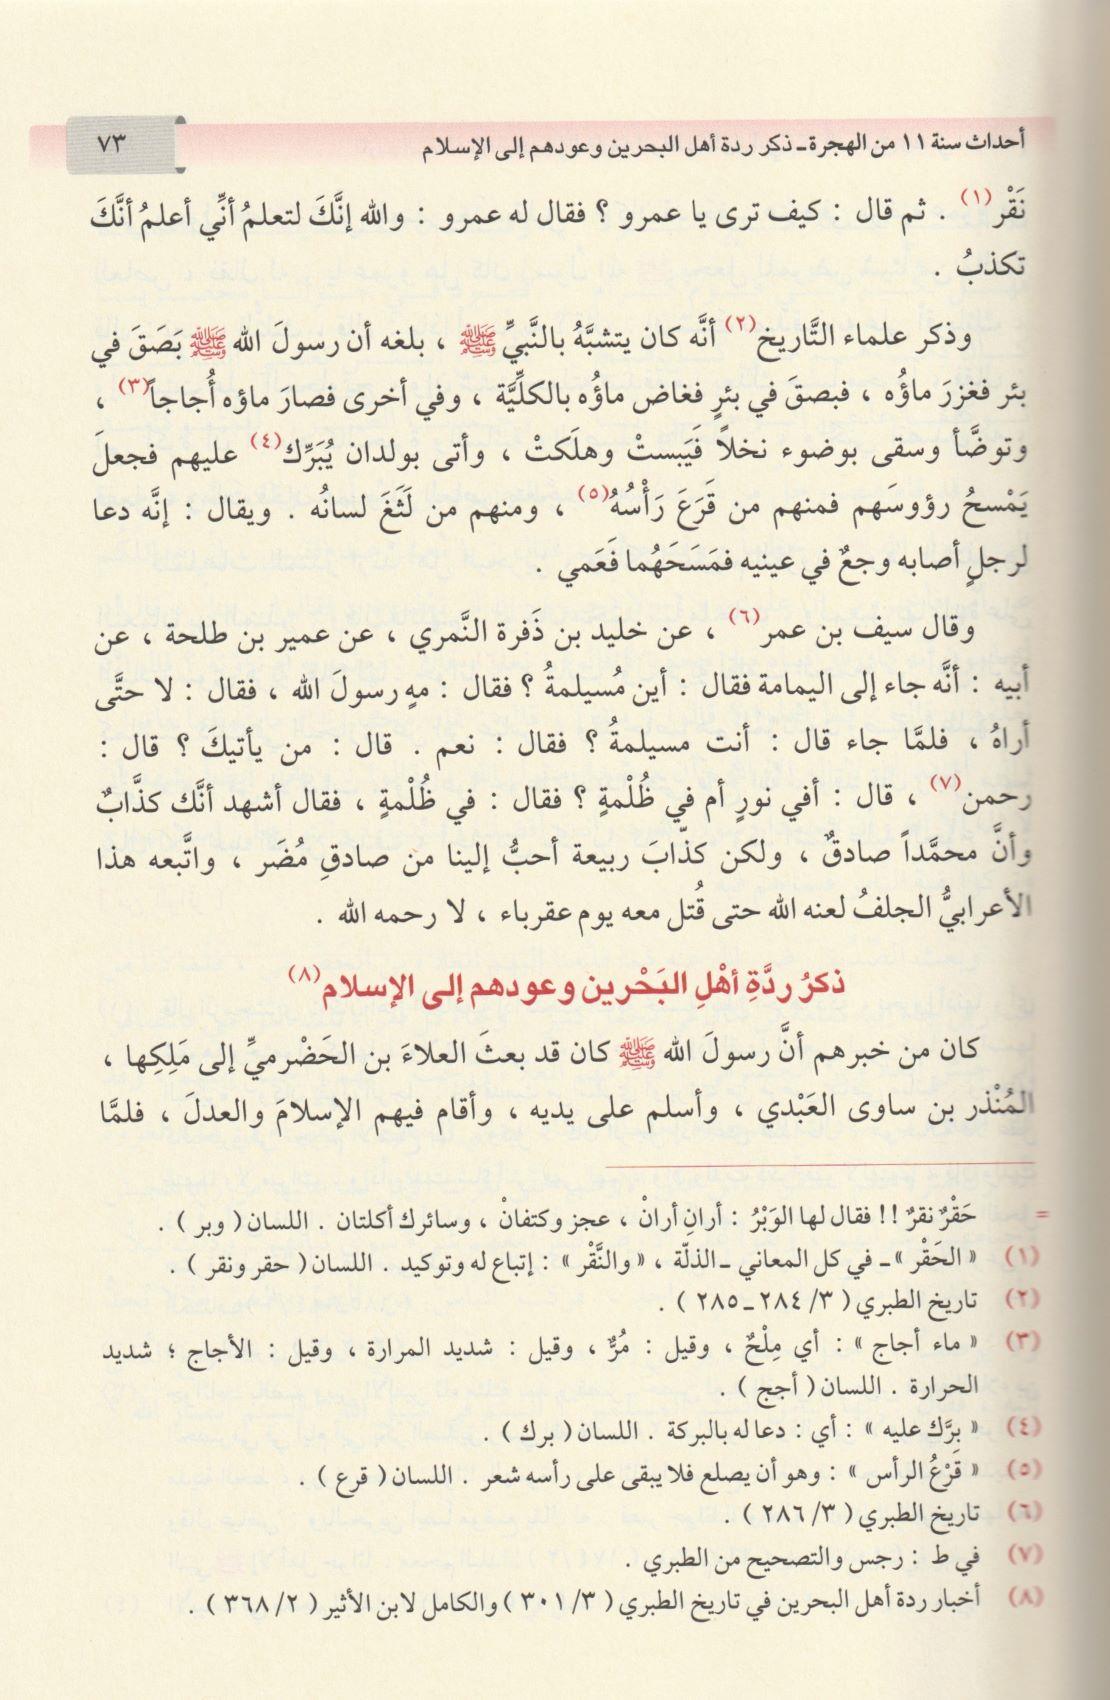 أحداث سنة ١١ من الهجرة ـ ذكر ردة أهل البحرين وعودهم إلى الإسلام ٧٣
نَقْر(١) . ثم قال : كيف ترى يا عمرو ؟ فقال له عمرو : والله إنَّكَ لتعلمُ أنِّي أعلمُ أنَّكَ
تكذبُ .
وذكر علماء التَّاريخ(٢) أنَّه كان يتشبَّهُ بالنَّبيِّ ﷺ ، بلغه أن رسولَ الله ﷺ بَصَقَ في
بئر فغزرَ ماؤُه ، فبصقَ في بئرٍ فغاض ماؤُه بالكلِّيَّة ، وفي أخرى فصارَ ماؤه أُجاجاً(٣) ،
وتوضَّأ وسقى بوضوء نخلاً فَيَبستْ وهلَكتْ ، وأتى بولدان يُبَرِّك(٤) عليهم فجعلَ
يَمْسحُ رؤوسَهم فمنهم من قَرَعَ رَأْسُهُ(٥) ، ومنهم من لَثَغَ لسانُه . ويقال : إنَّه دعا
لرجلٍ أصابه وجعٌ في عينيه فمَسَحَهُما فَعَمي .
وقال سيف بن عمر(٦) ، عن خليد بن ذَفرة النَّمري ، عن عمير بن طلحة ، عن
أبيه : أنَّه جاء إلى اليمامة فقال : أين مُسيلمةُ ؟ فقال : مهٍ رسولَ الله ، فقال : لا حتَّى
أراهُ ، فلمَّا جاء قال : أنت مسيلمةُ ؟ فقال : نعم . قال : من يأتيكَ ؟ قال :
رحمن(٧) ، قال : أفي نورٍ أم في ظُلْمةٍ ؟ فقال : في ظُلْمةٍ ، فقال أشهد أنَّك كذَّابٌ
وأنَّ محمَّداً صادقٌ ، ولكن كذّابَ ربيعة أحبُّ إلينا من صادقِ مُضَر ، واتَّبعه هذا
الأعرابيُّ الجلفُ لعنه الله حتى قُتل معه يوم عقرباء ، لا رحمه الله .
ذكرُ ردَّةِ أهْلِ البَحْرين وعودهم إلى الإسلام(٨)
كان من خبرهم أنَّ رسولَ الله ﷺ كان قد بعثَ العلاءَ بن الحَضْرميِّ إلى مَلِكِها ،
المُنْذر بن ساوى العَبْدي ، وأسلم على يديه ، وأقام فيهم الإسلامَ والعدلَ ، فلمَّا
= حَقْرٌ نقرٌ !! فقال لها الوَبْرُ : أرانِ أرانْ ، عجز وكتفانْ ، وسائرك أكلتان . اللسان ( وبر ) .
(١) « الحَقْر »ـ في كل المعاني ـ الذلّة ، « والنَّقْر » : إتباع له وتوكيد . اللسان ( حقر ونقر ) .
(٢) تاريخ الطبري ( ٣/ ٢٨٤ ـ ٢٨٥ ) .
(٣) « ماء أجاج » : أي مِلْحٌ ، وقيل : مُرٌّ ، وقيل : شديد المرارة ، وقيل : الأجاج ؛ شديد
الحرارة . اللسان ( أجج ) .
(٤) « برَّك عليه » : أي : دعا له بالبركة . اللسان ( برك ) .
(٥) « قَرْعُ الرأس » : وهو أن يصلع فلا يبقى على رأسه شعر . اللسان ( قرع ) .
(٦) تاريخ الطبري ( ٣/ ٢٨٦ ) .
(٧) في ط : رجس والتصحيح من الطبري .
(٨) أخبار ردة أهل البحرين في تاريخ الطبري ( ٣/ ٣٠١ ) والكامل لابن الأثير ( ٢/ ٣٦٨ ) .